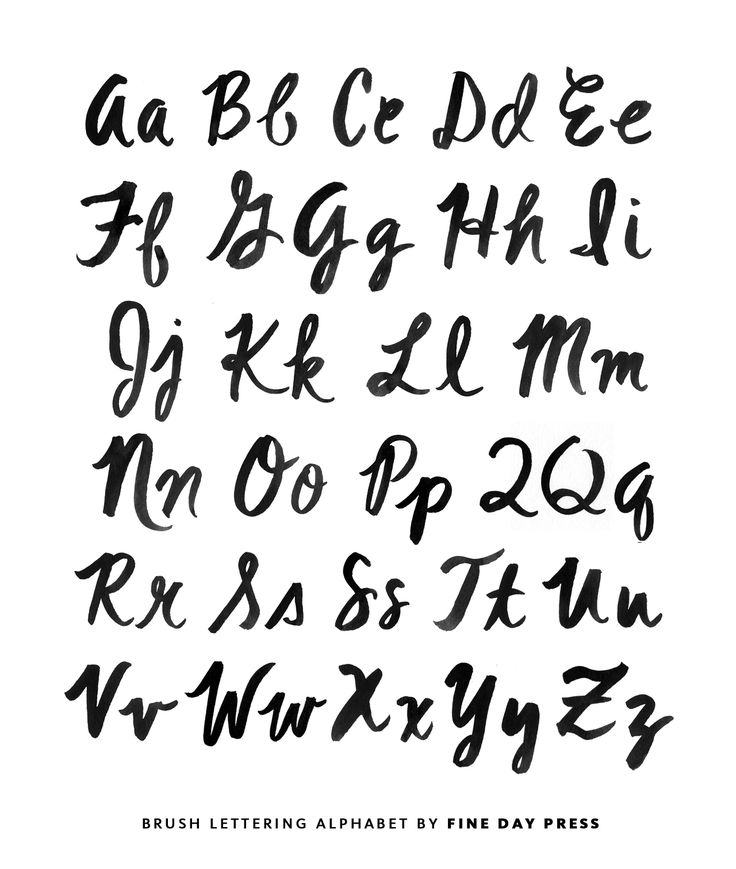 Aa Bb Cc Dd Ee
Ff G Gg Hh Ii
Jj Kk Ll Mm
Nn Oo Pp QQq
Rr Ss Ss Tt Uu
Vv Ww Xx Yy Zz
BRUSH LETTERING ALPHABET BY FINE DAY PRESS